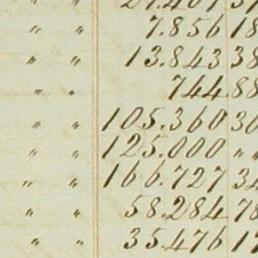 " " 7.856 18
" " 13.843 38
" " 744.88
" " 105.360 30
" " 125.000 " "
" " 166.727 34
" " 58.284 78
" " 35.476 17